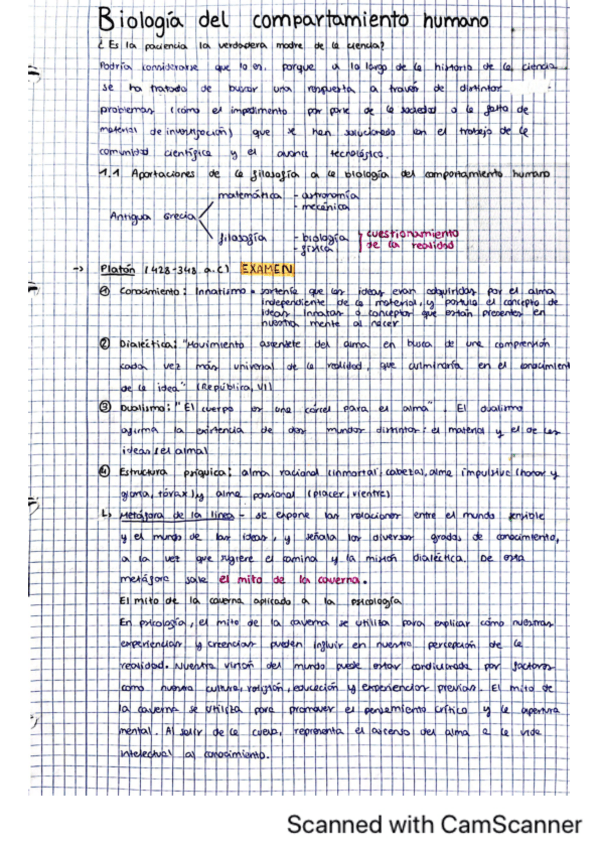 Biología del compartamiento humano
¿Es la paciencia la verdadera madre de la ciencia?
Podría considerarse que lo es, porque a lo largo de la historia de la ciencia
se ha tratado de buscar una respuesta a través de distintos
problemas (como el impedimento por parte de la sociedad o la falta de
material de investigación) que se han solucionado con el trabajo de la
comunidad científica y el avance tecnológico.
1.1 Aportaciones de la filosofía a la biología del comportamiento humano
matemática - astronomía
- mecánica
Antigua Grecia
filosofía - biología } cuestionamiento
- física de la realidad
-> Platón (428-348 a.C) EXAMEN
① Conocimiento: Innatismo = sostenía que las ideas eran adquiridas por el alma
independiente de lo material, y postula el concepto de
ideas innatas o conceptos que están presentes en
nuestra mente al nacer
② Dialéctica: "Movimiento ascendete del alma en busca de una comprensión
cada vez más universal de la realidad, que culminaría en el conocimient
de la idea" (República, VI)
③ Dualismo: "El cuerpo es una cárcel para el alma". El dualismo
afirma la existencia de dos mundos distintos: el material y el de las
ideas (el alma)
④ Estructura psíquica: alma racional (inmortal, cabeza), alma impulsiva (honor y
gloria, tórax) y alma pasional (placer, vientre)
↳ Metáfora de la línea - se expone las relaciones entre el mundo sensible
y el mundo de las ideas, y señala los diversos grados de conocimiento,
a la vez que sugiere el camino y la misión dialéctica. De esta
metáfora sale el mito de la caverna.
El mito de la caverna aplicado a la psicología
En psicología, el mito de la caverna se utiliza para explicar cómo nuestras
experiencias y creencias pueden influir en nuestra percepción de la
realidad. Nuestra visión del mundo puede estar condicionada por factores
como nuestra cultura, religión, educación y experiencias previas. El mito de
la caverna se utiliza para promover el pensamiento crítico y la apertura
mental. Al salir de la cueva, representa el ascenso del alma a la vida
intelectual al conocimiento.
Scanned with CamScanner